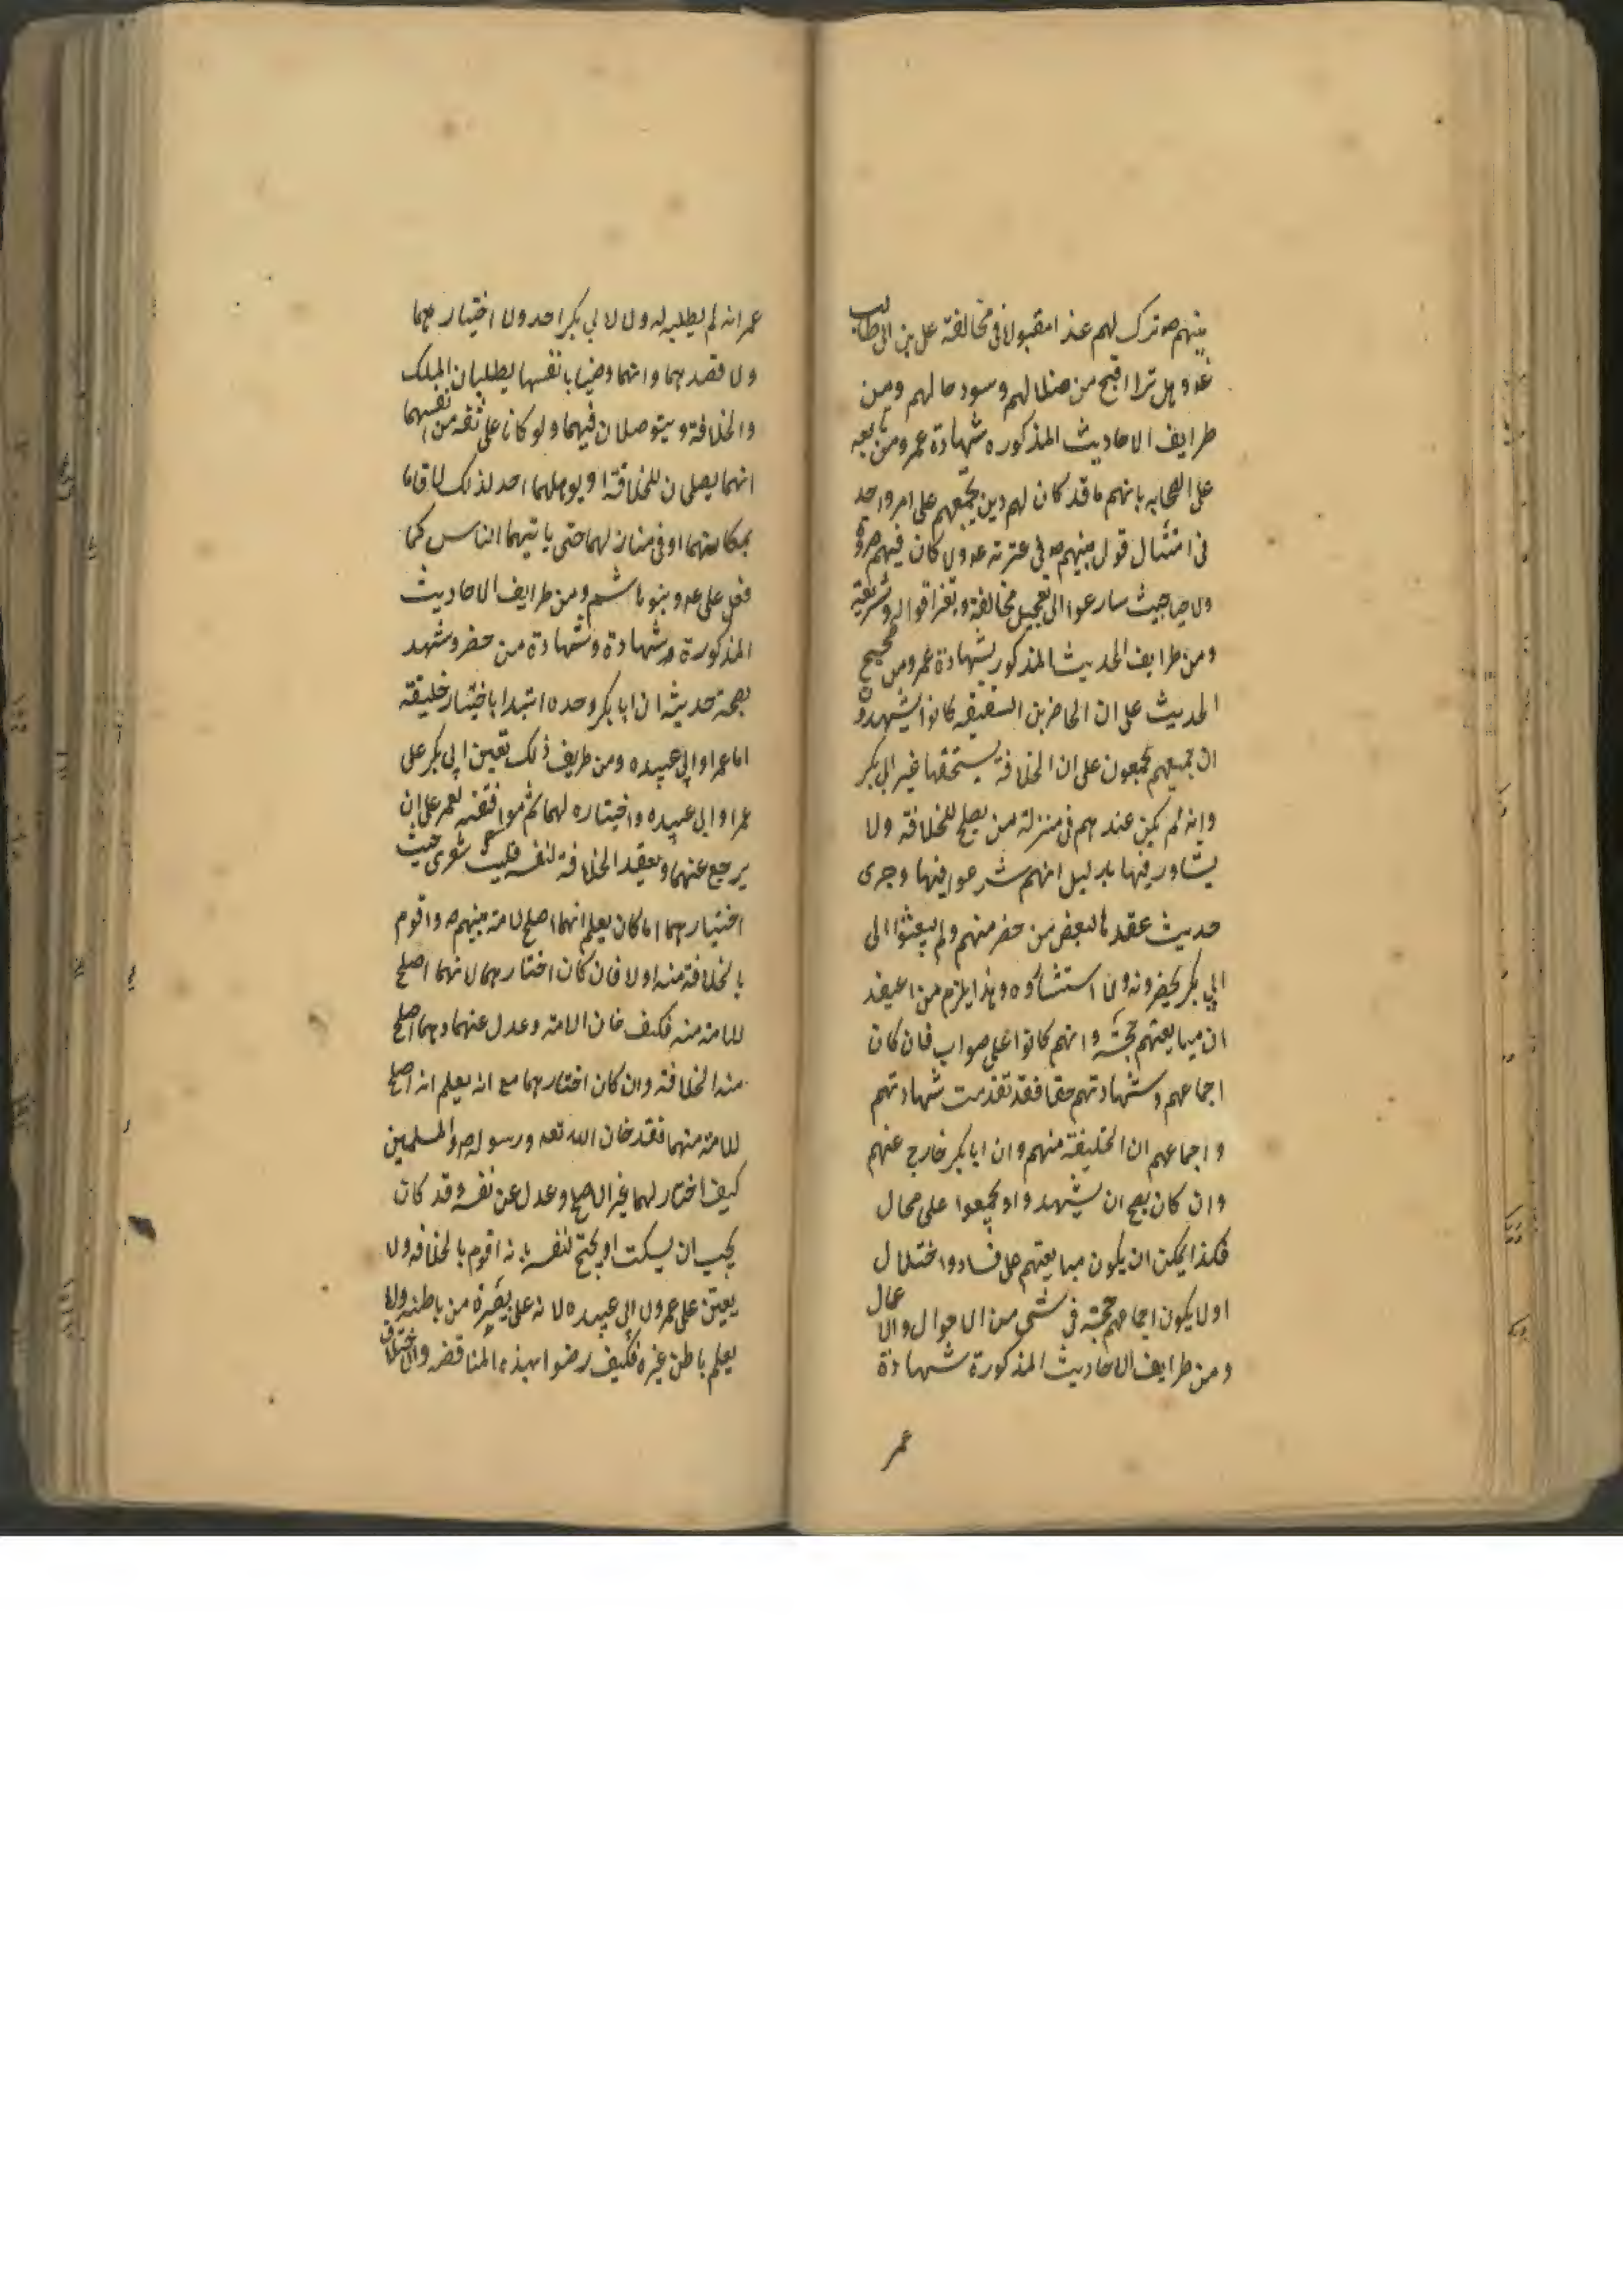 نبيهم ص ترك لهم عذرا مقبولا فى مخالفة على بن ابى طالب
ع و هل ترا اقبح من ضلالهم وسوء حالهم ومن
طرايف الاحاديث المذكوره شهادة عمر ومن تابعه
على الصحابه بانهم ما قد كان لهم دين يجمعهم على امر واحد
فى امتثال قول نبيهم ص فى عترته ع ولا كان فيهم مروة
ولا حيث سارعوا الى تعجيل مخالفته و اقواله وشريعته
ومن طرايف الحديث المذكور بشهادة عمر ومن صحيح
الحديث على ان الحاضرين السقيفه كانوا يشهدون
ان جميعهم مجمعون على ان الخلافة يستحقها غير ابى بكر
وانه لم يكن عندهم فى منزلة من يصلح للخلافة ولا
يشاور فيها بدليل انهم شرعوا فيها وجرى
حديث عقدها لبعض من حضر منهم ولم يبعثوا الى
ابى بكر يحضرونه ولا استشاروه وهذا يلزم من اعتقد
ان مبايعتهم حجة وانهم كانوا على صواب فان كان
اجماعهم وشهادتهم حقا فقد تقدمت شهادتهم
واجماعهم ان الخليفة منهم وان ابا بكر خارج عنهم
وان كان يصح ان يشهدوا او يجمعوا على محال
فكذا يمكن ان يكون مبايعتهم على فساد واختلال
او لا يكون اجماعهم حجة فى شى من الاحوال والاعمال
ومن طرايف الاحاديث المذكورة شهادة
عمر
عمر انه لم يطلبه له ولا لابي بكر احد ولا اختيارهما
ولا قصدهما وانهما وضيا بانفسهما يطلبان الملك
والخلافة ويتوصلان فيهما ولو كانا على ثقه من انفسهما
انهما يصلحان للخلافة او يوهلهما احد لذلك لاقاما
بمكانهما او فى منازلهما حتى ياتيهما الناس كما
فعل على ع وبنو هاشم ومن طرايف الاحاديث
المذكورة وشهادة وشهادة من حضر وشهد
بصحة حديثه ان ابا بكر وحده ابتدا باختيار خليفة
اما عمر او ابي عبيده ومن طريف ذلك تعيين ابى بكر على
عمر او ابى عبيده واختياره لهما ثم موافقته لعمر على ان
يرجع عنهما ويعقد الخلافة لنفسه فليت شعرى حيث
اختيارهما اما كان يعلم انهما اصلح لامة نبيهم ص واقوم
بالخلافة منه اولا فان كان اختارهما لانهما اصلح
للامة منه فكيف خان الامة وعدل عنهما وهما اصلح
منه الخلافة وان كان اختارهما مع انه يعلم انه اصلح
للامة منهما فقد خان الله تعه ورسوله ص والمسلمين
كيف اختار لهما غير الاصلح وعدل عن نفسه وقد كان
يجب ان يسكت او يحتج لنفسه بانه اقوم بالخلافه ولا
يعين على عمر ولا ابى عبيده لانه على بصيرة من باطنه ولا
يعلم باطن غيره فكيف رضوا بهذه المناقضه والاختلاف